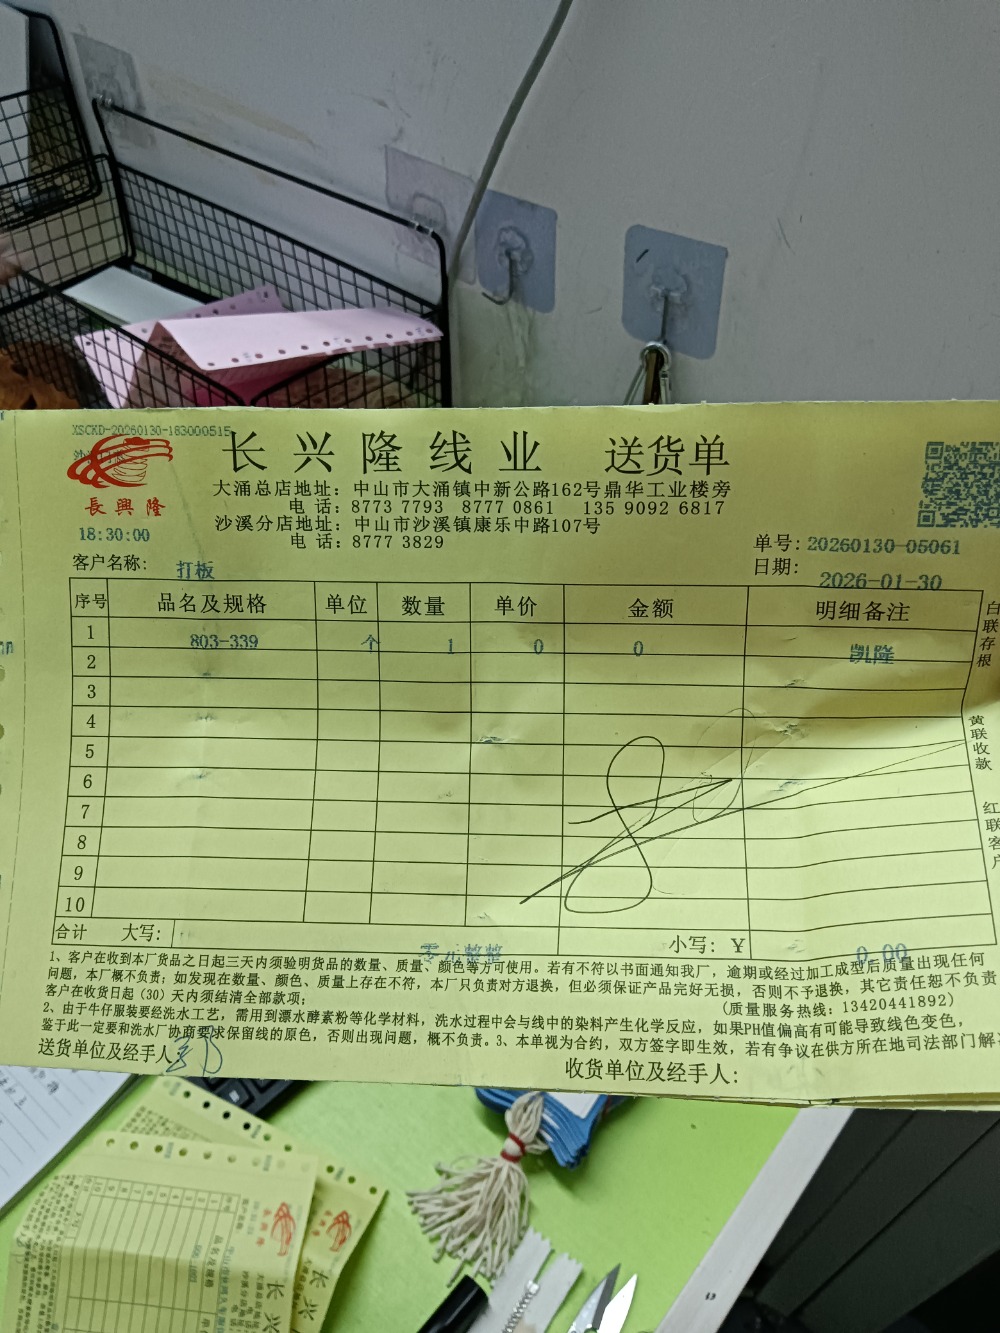 XSCKD-20260130-183000515
長興隆
长兴隆线业 送货单
大涌总店地址：中山市大涌镇中新公路162号鼎华工业楼旁
电 话：8773 7793 8777 0861 135 9092 6817
沙溪分店地址：中山市沙溪镇康乐中路107号
电 话：8777 3829
18:30:00
单号：20260130-05061
客户名称：打板
日期：2026-01-30
序号 品名及规格 单位 数量 单价 金额 明细备注
1 803-339 个 1 0 0 凯隆
2
3
4
5
6
7
8
9
10
合计 大写：零元整 小写：¥ 0.00
1、客户在收到本厂货品之日起三天内须验明货品的数量、质量、颜色等方可使用。若有不符以书面通知我厂，逾期或经过加工成型后质量出现任何
问题，本厂概不负责；如发现在数量、颜色、质量上存在不符，本厂只负责对方退换，但必须保证产品完好无损，否则不予退换，其它责任恕不负责
客户在收货日起（30）天内须结清全部款项；
(质量服务热线：13420441892)
2、由于牛仔服装要经洗水工艺，需用到漂水酵素粉等化学材料，洗水过程中会与线中的染料产生化学反应，如果PH值偏高有可能导致线色变色，
鉴于此一定要和洗水厂协商要求保留线的原色，否则出现问题，概不负责。3、本单视为合约，双方签字即生效，若有争议在供方所在地司法部门解
送货单位及经手人：
收货单位及经手人：
白联存根
黄联收款
红联客户